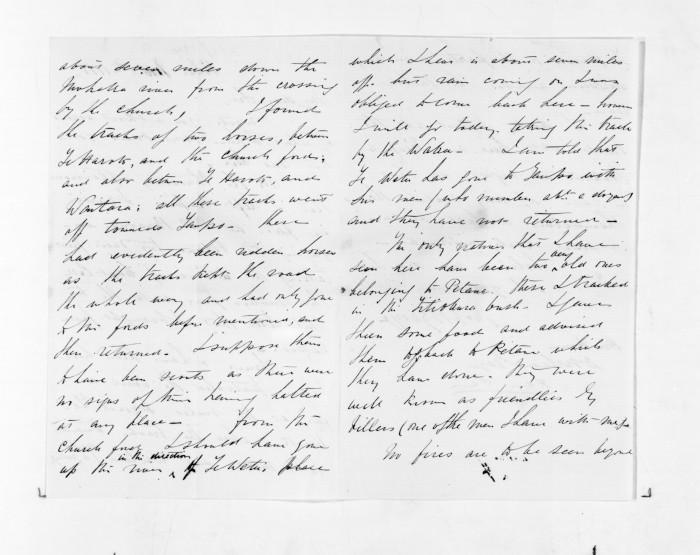 about seven miles down the
Mohaka river from the crossing
by the church, I found
the tracks of two horses, between
Te Haroto, and the church ford;
and also between Te Haroto, and
all these tracks went
off towards Taupo - these
had evidently been ridden horses
as the tracks kept the road
the whole way and had only gone
to the fords before mentioned, and
then returned - I suppose them
to have been scouts as there were
no signs of their having halted
at any place - from the
church I should have gone
up the river in the direction of Te Wetu's place
which I hear is about seven miles
off but rain coming on I was
obliged to come back here -
I will go today, taking the track
by the - I am told that
Te Wetu has gone to Taupo with
his men (who number abt. a dozen)
and they have not returned -
The only natives that I have
seen here have been two very old ones
belonging to Petane. these I tracked
in the Titiokura bush - I gave
them some food and advised
them to go back to Petane which
they have done. They were
well known as friendlies by
Villers (one of the men I have with me).
No fires are to be seen beyond